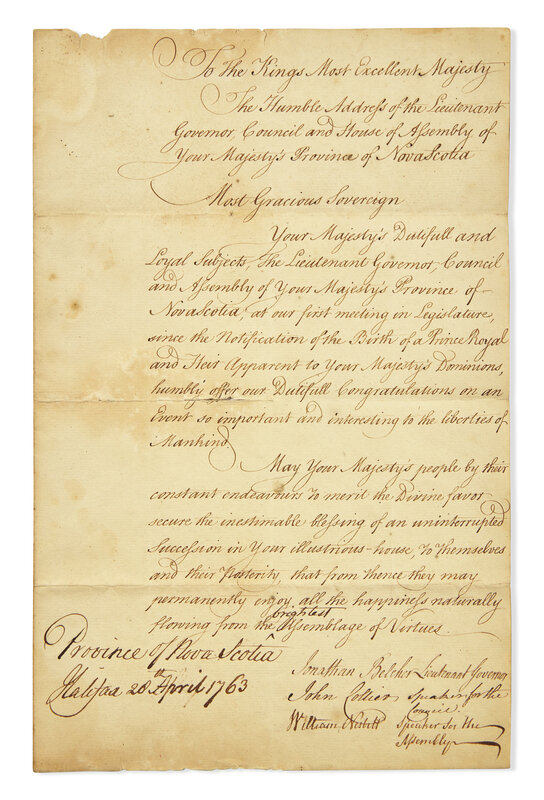 To The Kings Most Excellent Majesty
The Humble Address of the Lieutenant
Governor, Council and House of Assembly of
Your Majesty's Province of NovaScotia
Most Gracious Sovereign
Your Majesty's Dutifull and
Loyal Subjects, The Lieutenant Governor, Council
and Assembly of Your Majesty's Province of
NovaScotia, at our first meeting in Legislature,
since the Notification of the Birth of a Prince Royal
and Heir Apparent to Your Majesty's Dominions,
humbly offer our Dutifull Congratulations on an
Event so important and interesting to the liberties of
Mankind
May Your Majesty's people by their
constant endeavours to merit the Divine favor
secure the inestimable blessing of an uninterrupted
Succession in Your illustrious house, To Themselves
and their Posterity, that from thence they may
permanently enjoy all the happiness naturally
brightest
flowing from the Assemblage of Virtues.
Province of Nova Scotia
Halifax 28th April 1763
Jonathan Belcher Lieutenant Governor
John Collier Speaker for the
Council.
William Nesbitt Speaker for the
Assembly